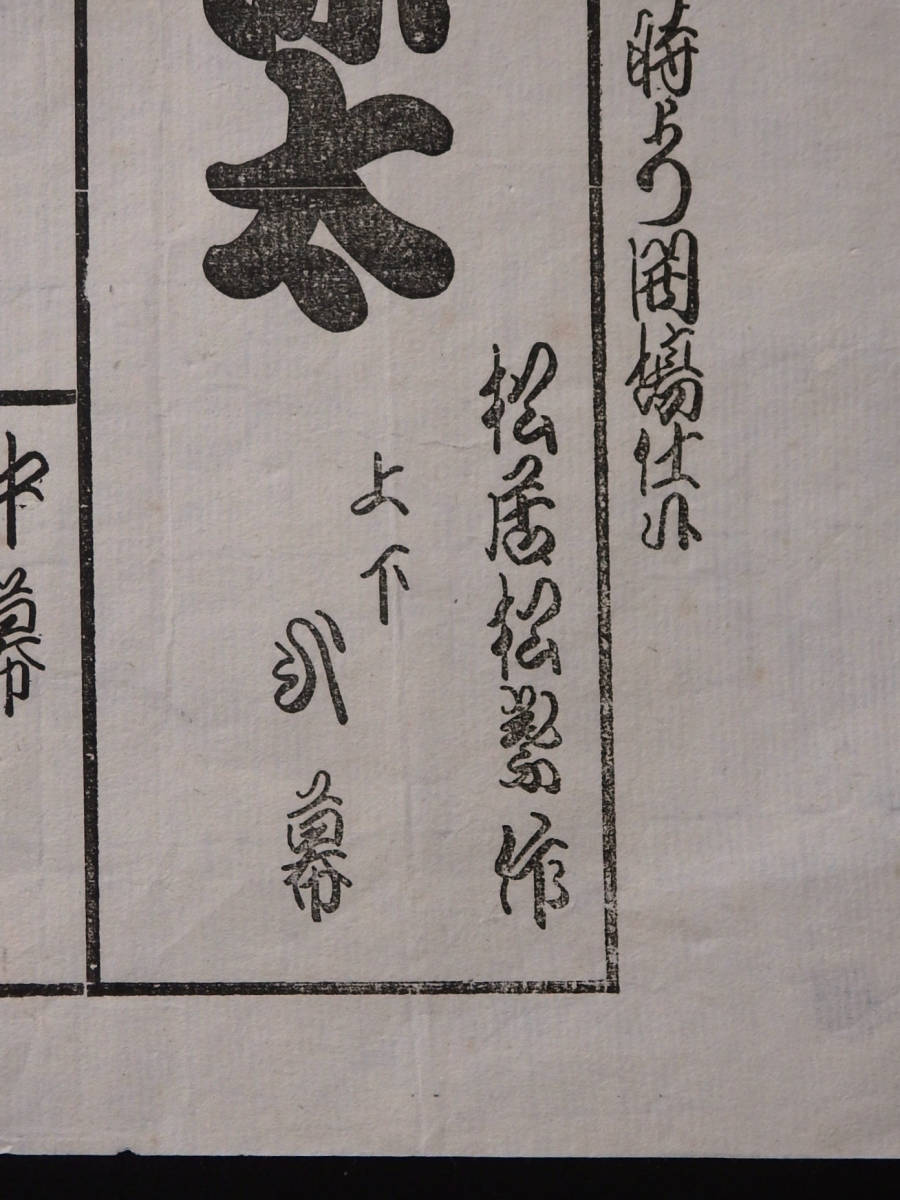 時より開場仕候
松居松葉作
太
上下
弐幕
中幕